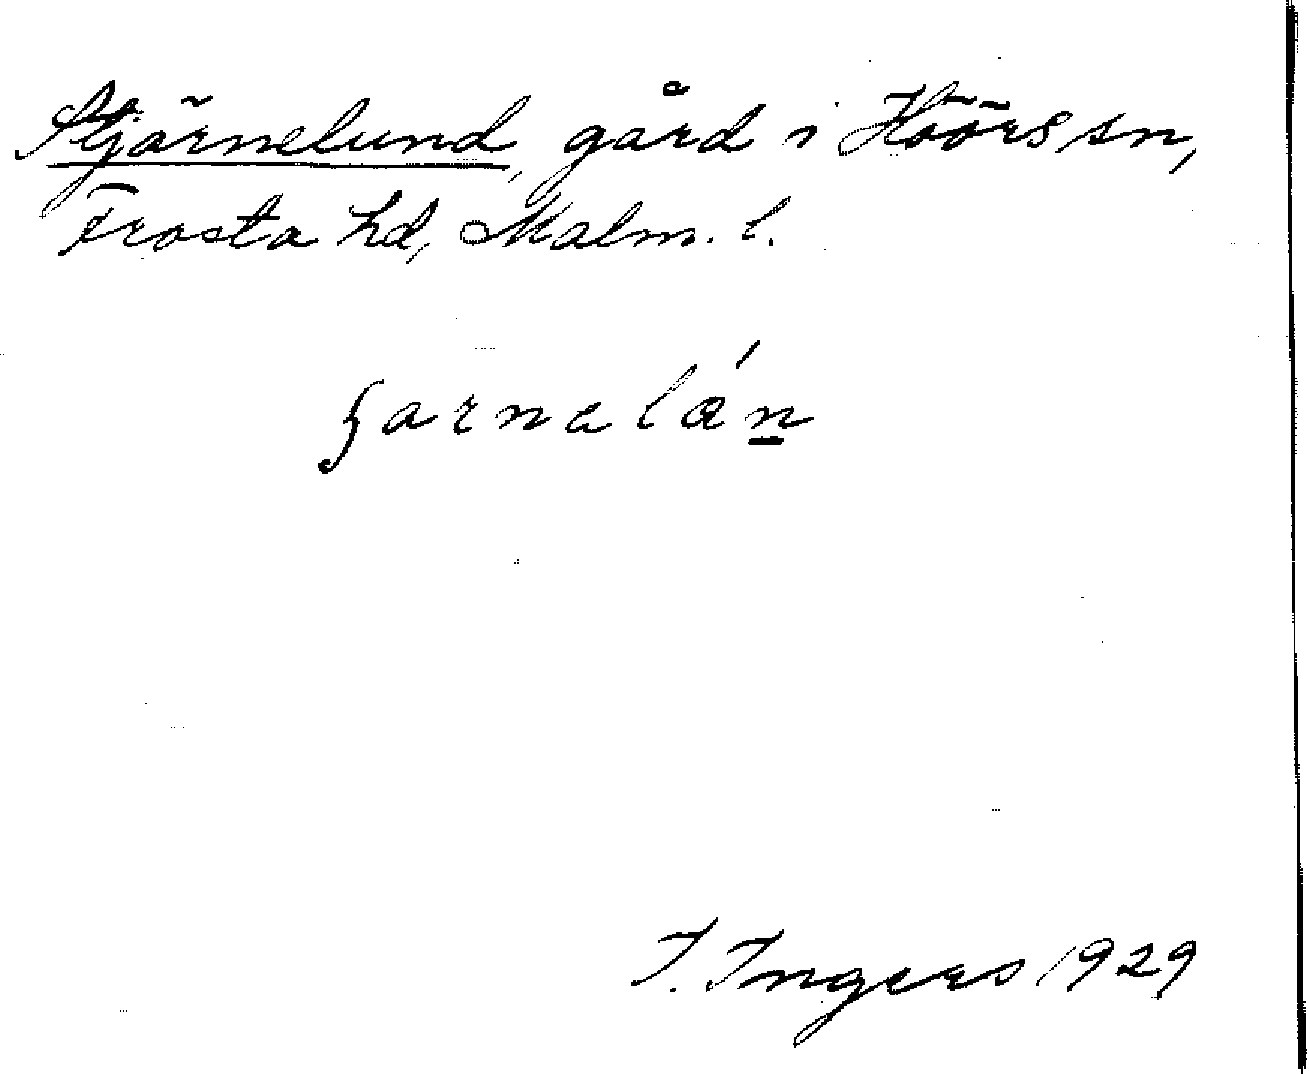 Stjärnelund, gård i Höörs sn,
Frosta hd, Malm. l.
I. Ingers 1929